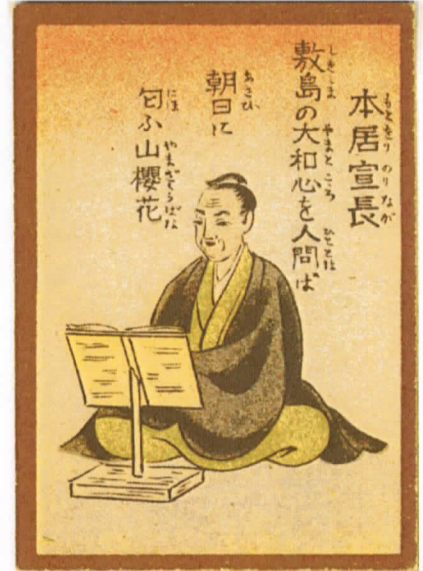 本居宣長
もとをり のりなが
敷島の大和心を人問ば
しきしま やまとこころ ひととは
朝日に
あさひ
匂ふ山櫻花
にほ やまざくらばな